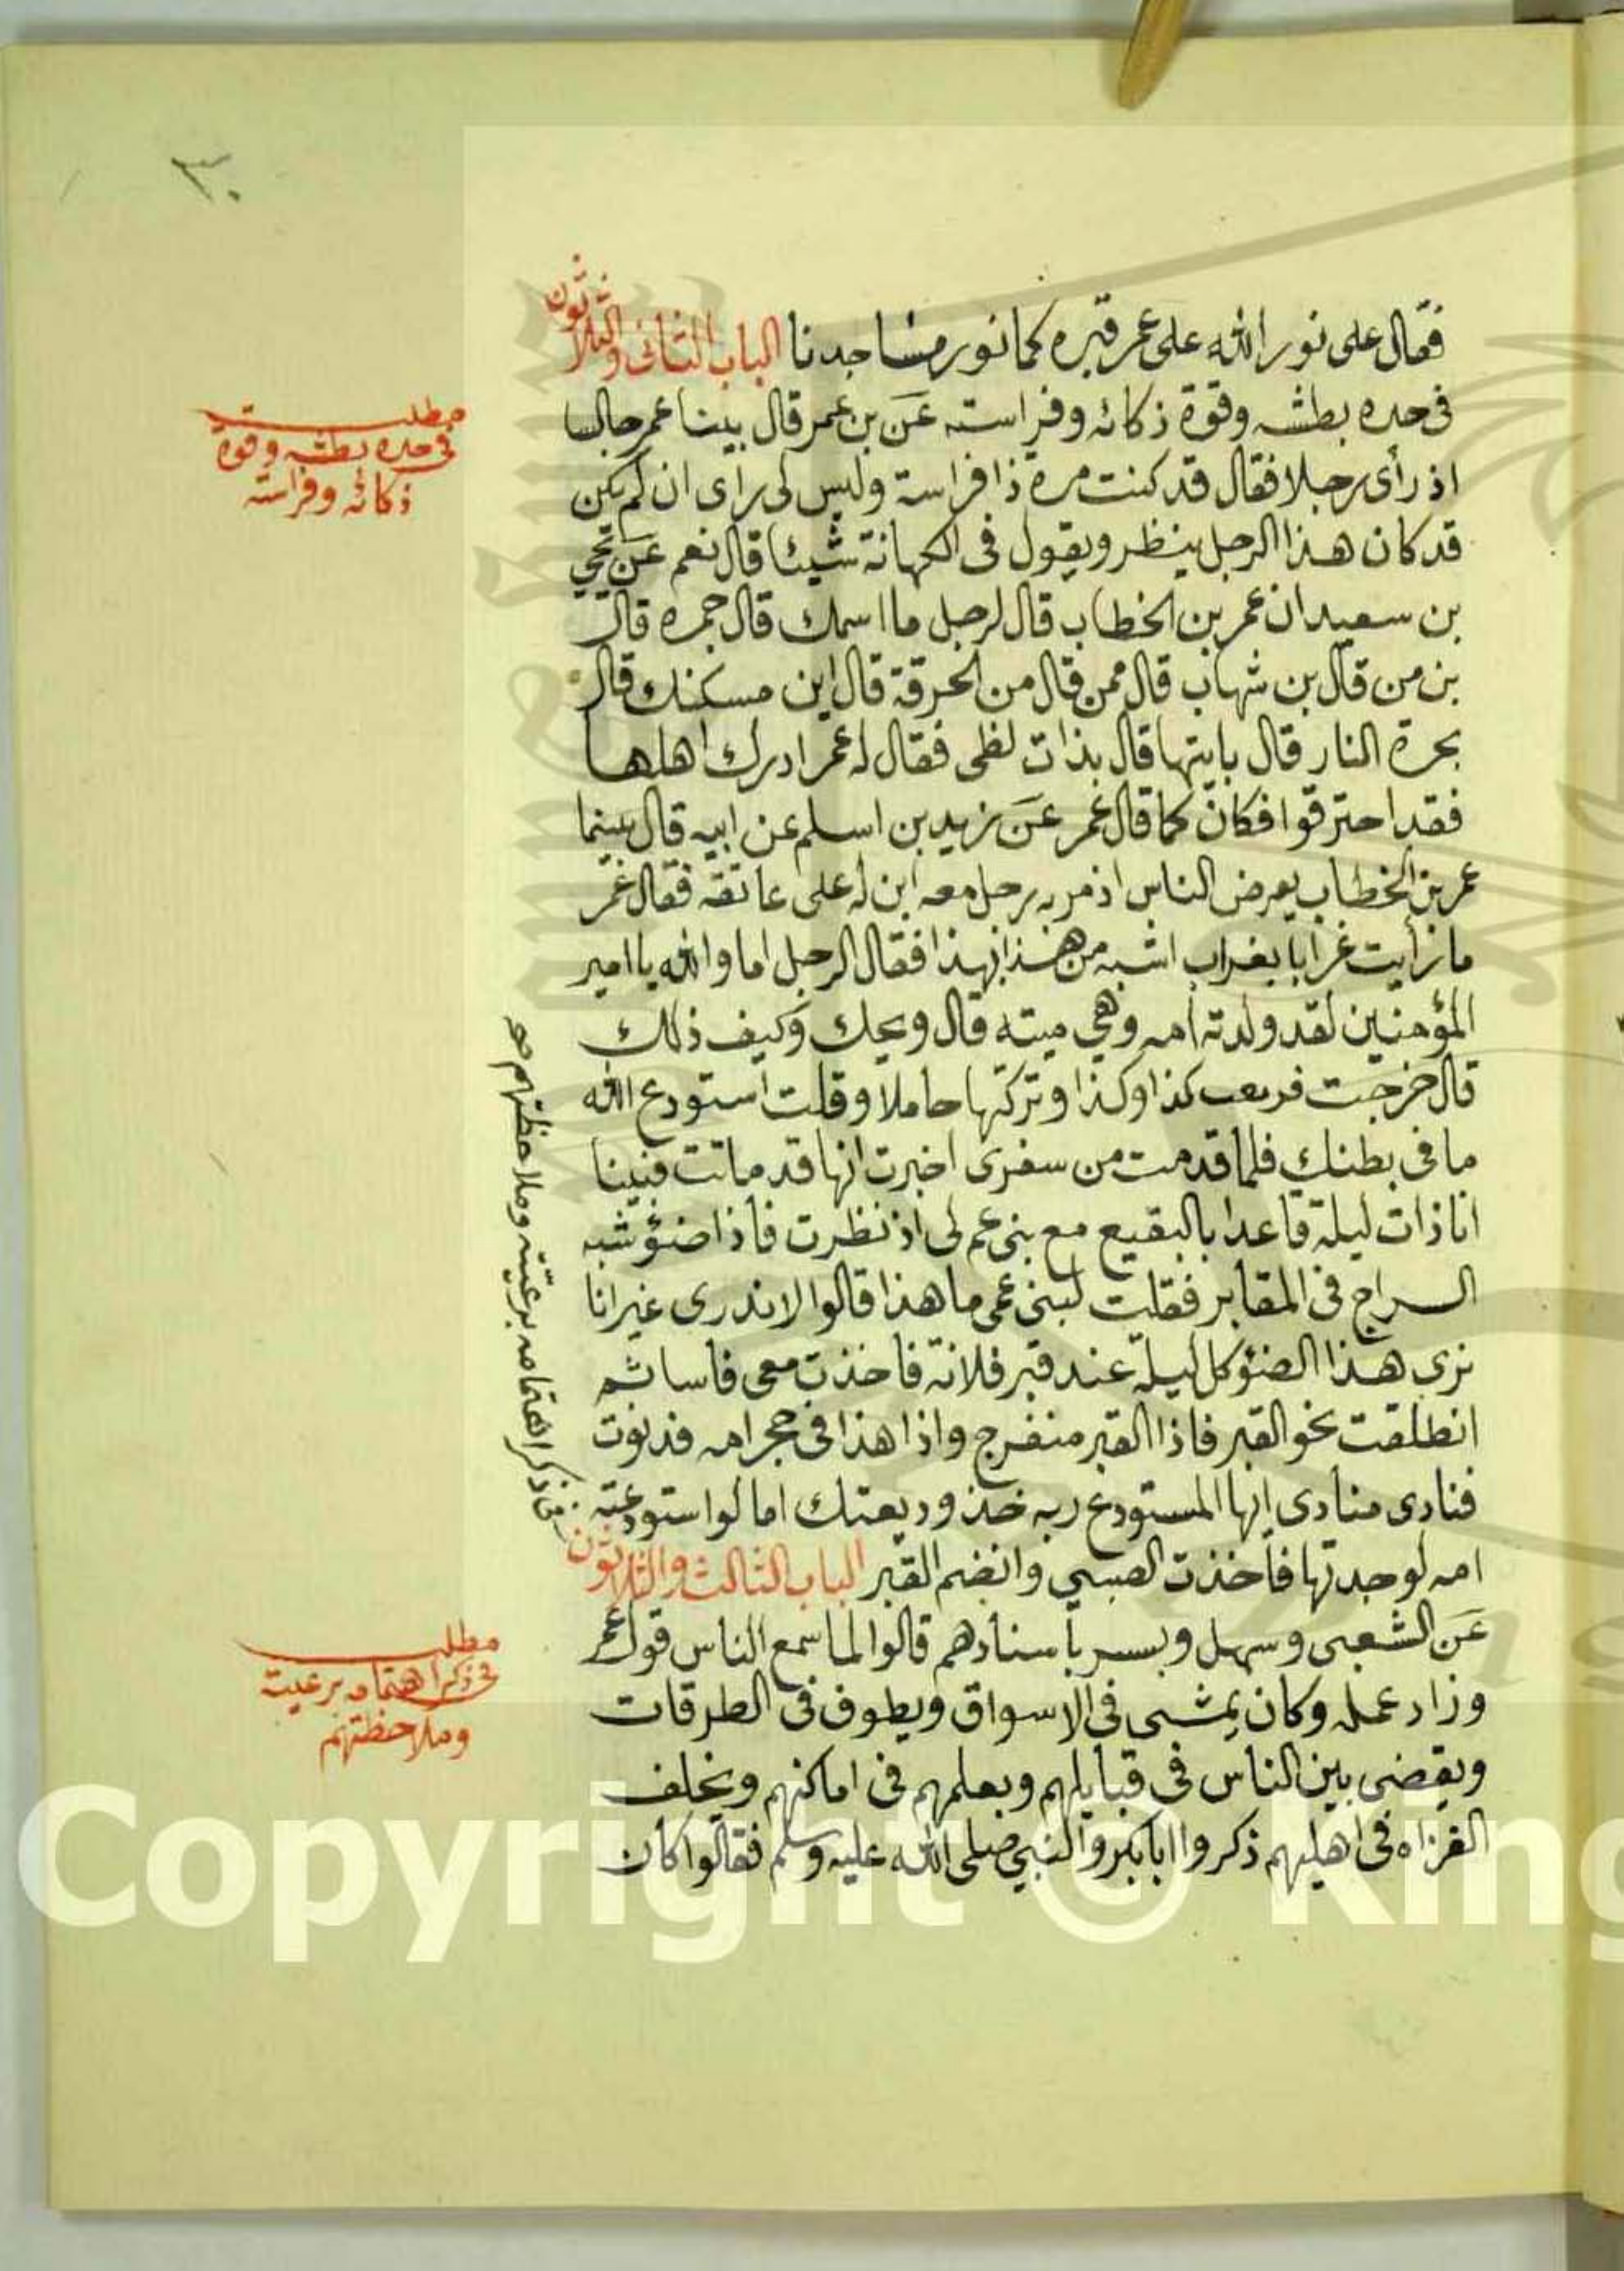 ٣٠
فقال على نور الله على عمر قبره كما نور مساجدنا الباب الثانى والثلاثون
فى حده بطشه وقوة ذكائه وفراسته عن بن عمر قال بينا عمر جالسا
اذ رأى رجلا فقال قد كنت مرة ذا فراسة وليس لى راى ان لم يكن
قد كان هذا الرجل ينظر ويقول فى الكهانة شيئا قال نعم عن يحيي
بن سعيد ان عمر بن الخطاب قال لرجل ما اسمك قال جمره قال
بن من قال بن شهاب قال ممن قال من الحرقة قال اين مسكنك قال
بحرة النار قال بايتها قال بذات لظى فقال له عمر ادرك اهلها
فقد احترقوا فكان كما قال عمر عن زيد بن اسلم عن ابيه قال بينما
عمر بن الخطاب يعرض الناس اذ مر به رجل معه ابن له على عاتقه فقال عمر
ما رأيت غرابا بغراب اشبه من هذا بهذا فقال الرجل اما والله يا امير
المؤمنين لقد ولدته امه وهي ميته قال ويحك وكيف ذلك
قال خرجت فى بعث كذا وكذا وتركتها حاملا وقلت استودع الله
ما فى بطنك فلما قدمت من سفرى اخبرت انها قد ماتت فبينا
انا ذات ليلة قاعدا بالبقيع مع بنى عم لى اذ نظرت فاذا ضوء شبه
السراج فى المقابر فقلت لبنى عمى ما هذا قالوا لا ندرى غير انا
نرى هذا الضوء كل ليلة عند قبر فلانة فاخذت معى فاسا ثم
انطلقت نحو القبر فاذا القبر منفرج واذا هذا فى حجر امه فدنوت
فنادى منادى ايها المستودع ربه خذ وديعتك اما لو استودعته
امه لوجدتها فأخذت الصبي وانضم القبر الباب الثالث والثلاثون
فى ذكر اهتمامه برعيته وملاحظتهم صح
عن الشعبى وسهل وبسر بأسنادهم قالوا لما سمع الناس قول عمر
وزاد عمله وكان يمشى فى الاسواق ويطوف فى الطرقات
ويقضى بين الناس فى قبايلهم ويعلمهم فى اماكنهم ويخلف
الغزاه فى اهليهم ذكروا ابا بكر والنبي صلى الله عليه وسلم فقالوا كان
مطلب
فى حده بطشه وقوة
ذكائه وفراسته
مطلب
فى ذكر اهتمامه برعيته
وملاحظتهم
Copyright © King